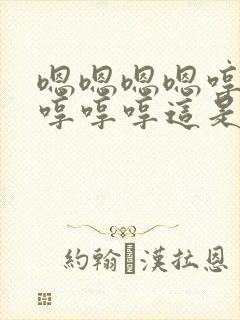 嗯嗯嗯嗯哼
哼哼哼這是
約翰漢拉恩